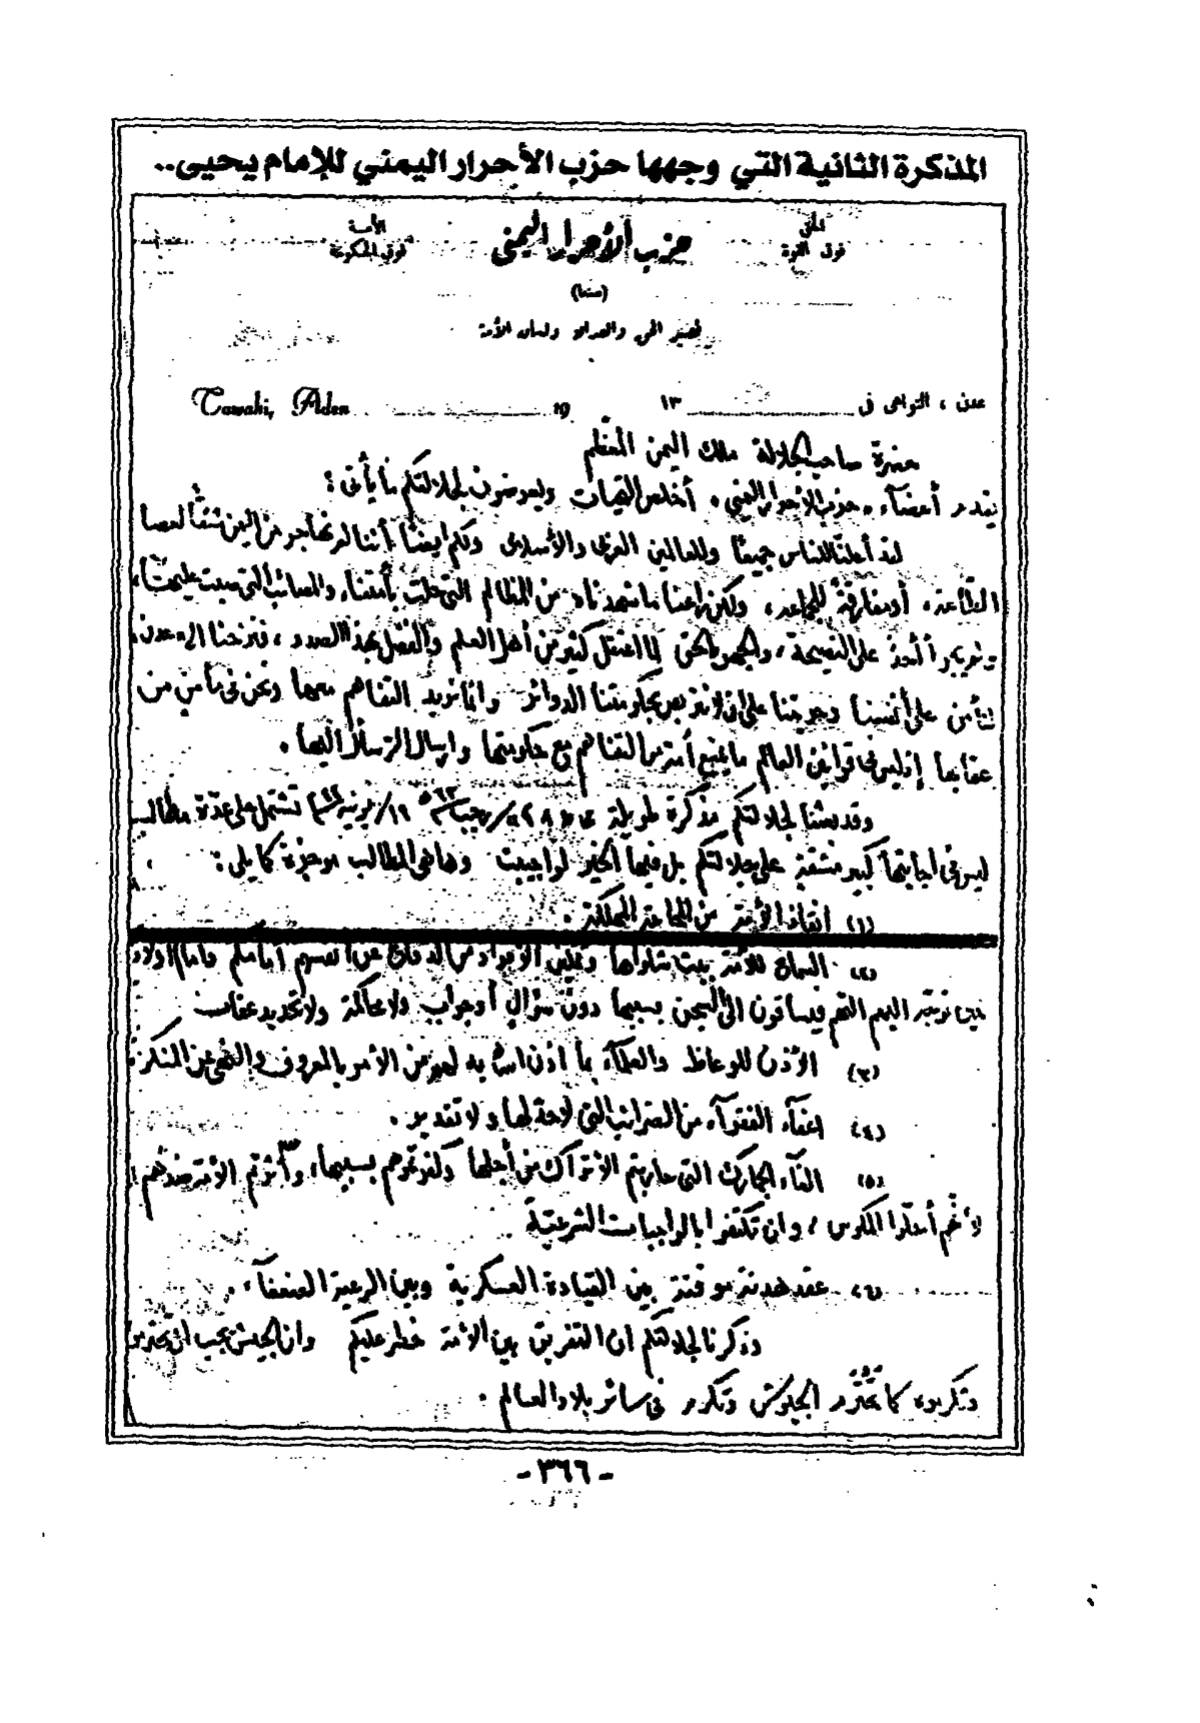 المذكرة الثانية التي وجهها حزب الأحرار اليمني للإمام يحيى..
الحق
فوق القوة
حزب الأحرار اليمني
الأمة
فوق الحكومة
(صنعا)
نصير الحق والعدالة ولسان الأمة
عدن ، التواهى فى ١٣
19 Tawahi, Aden
حضرة صاحب الجلالة ملك اليمن المعظم
يقدم أعضآء حزب الأحرار اليمني أخلص التحيات ويعرضون لجلالتكم ما يأتى :
لقد أعلنا للناس جميعًا وللعالمين العربى والأسلامى ولكم ايضًا أننا لم نهاجر من اليمن شقًا لعصا
الطاعة، أو مفارقةً للجماعة، ولكن راعنا ما شهدناه من المظالم التى حلت بأمتنا، والمصائب التى صبت عليها،
على النصيحة، والجهر بالحق لما اعتقل كثير من أهل العلم والفضل بهذا الصدد، فنزحنا الى عدن،
لنأمن على أنفسنا وحريتنا على ان لا نتربص بحكومتنا الدوائر وانما نريد التفاهم معها ونحن فى مأمن من
عقابها إذ ليس فى قوانين العالم ما يمنع أمة من التفاهم مع حكومتها وارسال الرسائل اليها .
وقد بعثنا لجلالتكم مذكرة طويلة تشتمل على عدة مطالب
ليس فى اجابتها كبير مشقة على جلالتكم بل فيها الخير لو اجيبت وها هى المطالب موجزة كما يلى :
(١) انقاذ الأمة من المجاعة المهلكة .
(٢) السماح للأمة ببث شكواها وتمكين الأفراد من الدفاع عن انفسهم امامكم وامام اولادكم
حين توجه اليهم التهم فيساقون الى السجن بسببها دون سؤال أو جواب ولا محاكمة ولا تحديد عقاب
(٣) الأذن للوعاظ والعلمآء بما أذن الله به لهم من الأمر بالمعروف والنهى عن المنكر
(٤) اعفآء الفقرآء من الضرائب التى لا حد لها ولا تقدير .
(٥) الغآء الجمارك التى حاربتم الأتراك من أجلها وكفرتموهم بسببها، وأثرتم الأمة ضدهم
لأنهم أحلّوا المكوس، وان تكتفوا بالواجبات الشرعية
(٦) عقد هدنة موقتة بين القيادة العسكرية وبين الرعية الضعفآء .
وذكرنا لجلالتكم ان التفريق بين الأمة خطر عليكم وان الجيش يجب ان تحترموه
وتكرموه كما تحترم الجيوش وتكرم فى سائر بلاد العالم .
- ٣٦٦ -